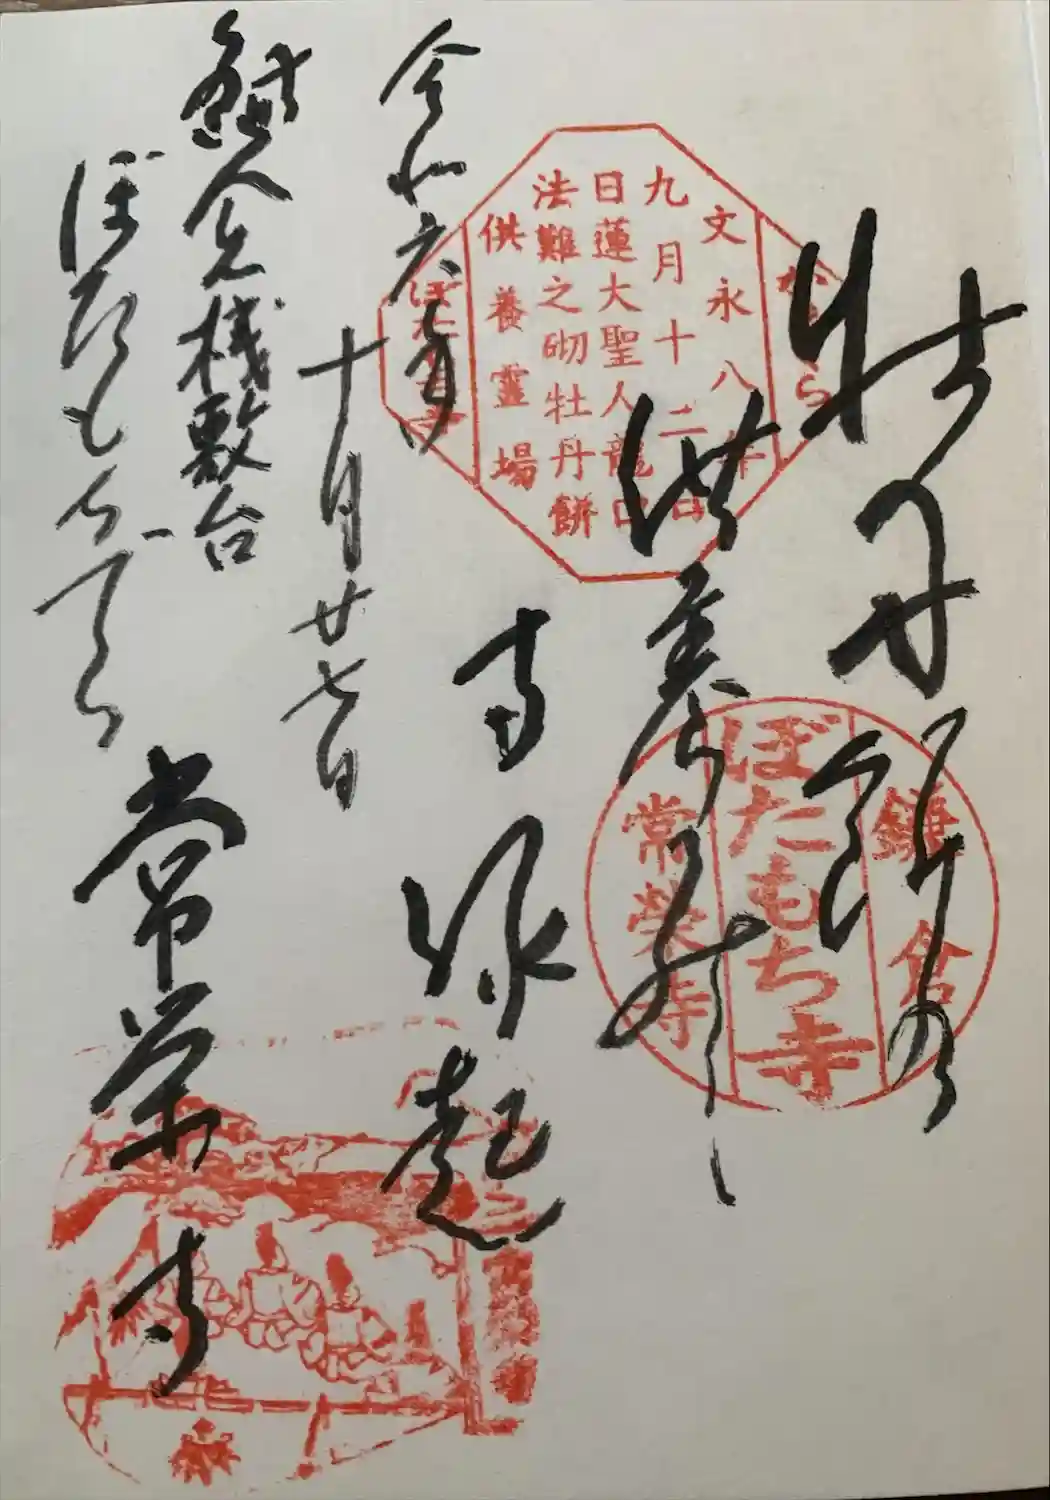 牡丹餅の
供養
寺縁起
令和六年
十月廿七日
桟敷台
ぼたもちでら
常栄寺
かまくら
文永八年
九月十二日
日蓮大聖人龍口
法難之砌牡丹餅
供養靈場
ぼたもち寺
鎌倉
ぼたもち寺
常榮寺